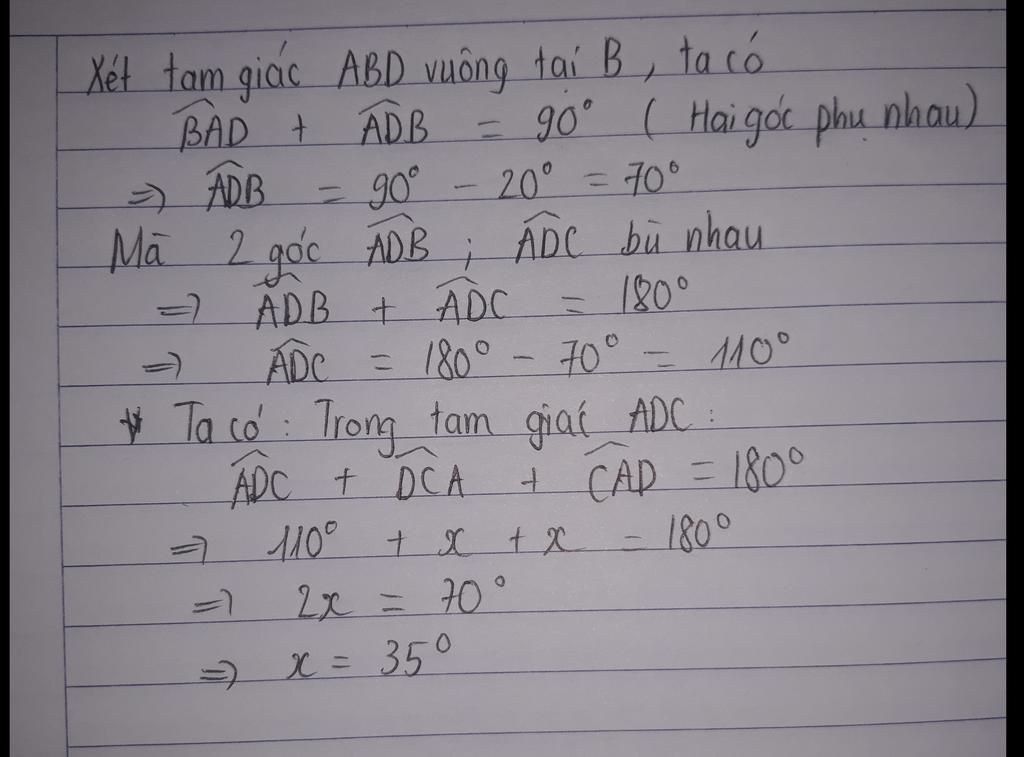 Xét tam giác ABD vuông tại B, ta có
$\widehat{BAD}$ + $\widehat{ADB}$ = 90° ( Hai góc phụ nhau)
=> $\widehat{ADB}$ = 90° - 20° = 70°
Mà 2 góc $\widehat{ADB}$ ; $\widehat{ADC}$ bù nhau
=> $\widehat{ADB}$ + $\widehat{ADC}$ = 180°
=> $\widehat{ADC}$ = 180° - 70° = 110°
* Ta có : Trong tam giác ADC :
$\widehat{ADC}$ + $\widehat{DCA}$ + $\widehat{CAD}$ = 180°
=> 110° + x + x = 180°
=> 2x = 70°
=> x = 35°